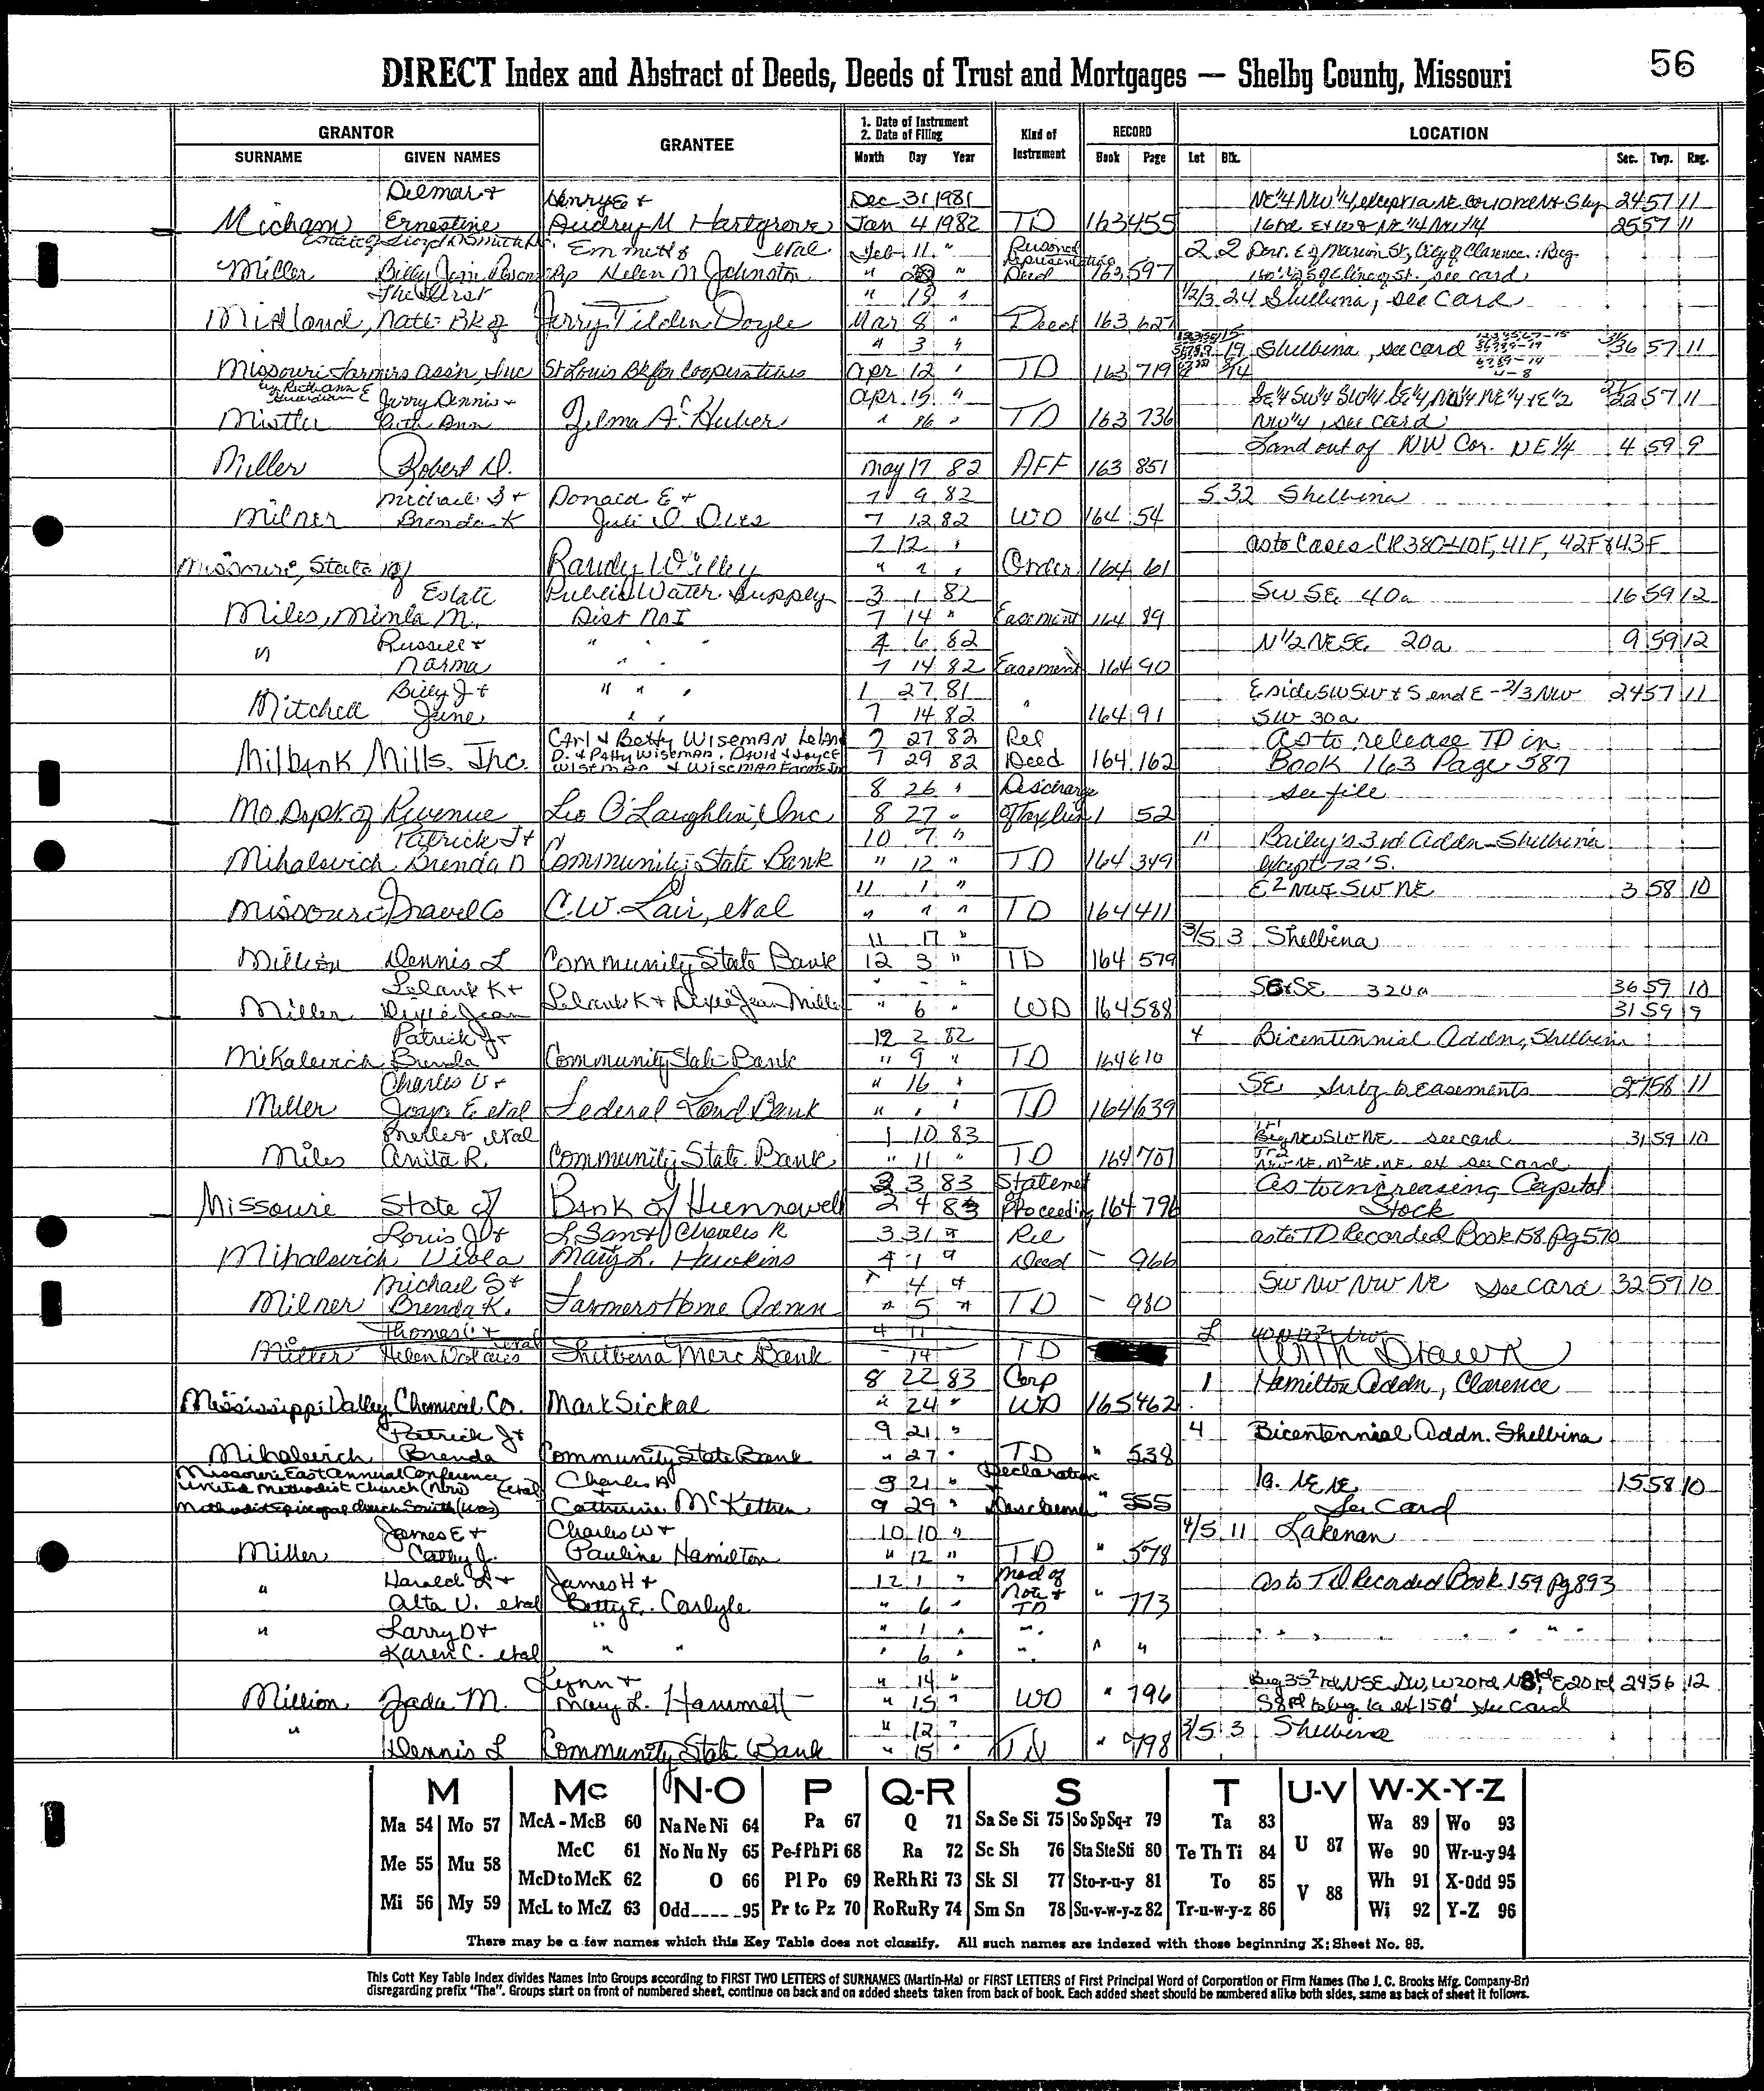 56
DIRECT Index and Abstract of Deeds, Deeds of Trust and Mortgages — Shelby County, Missouri
GRANTOR GRANTEE 1. Date of Instrument 2. Date of Filing Kind of Instrument RECORD LOCATION
SURNAME GIVEN NAMES Month Day Year Book Page Lot Blk. Sec. Twp. Rng.
Delmar + Henry E + Dec 31 1981 24 57 11
Micham Ernestine Audrey M Hartgrove Jan 4 1982 TD 163 455 25 57 11
Emmett & etal Feb 11 " Personal Representative 2 2
Miller Billy Jim Helen M Johnston " " Deed 163 597 see card
The First " 18 " 1/2/3 24 Shelbina, see card
Midland, Natl Bk of Jerry Tilden Doyle Mar 8 " Deed 163 627
" 3 " 19 Shelbina, see card 36 57 11
Missouri Farmers Assn, Inc St Louis Bk for Cooperatives Apr 12 " TD 163 719
Jerry Dennis + Apr 15 " SE¼ SW¼ SW¼ SE¼, NW¼ NE¼ + E½ 22 57 11
Mistler Ruth Ann Zelma A. Huber " 26 " TD 163 736 NW¼, see card
Land out of NW Cor. NE 1/4 4 59 9
Miller Robert D. May 17 82 AFF 163 851
Michael S + Donald E + 7 9 82 5 32 Shelbina
Milner Brenda K Juli D 7 12 82 WD 164 54
7 12 " as to Cases CR380-40F, 41F, 42F & 43F
Missouri, State of Randy Willey " " " Order 164 61
Estate Public Water Supply 3 1 82 SW SE 40a 16 59 12
Miles, Minta M. Dist No I 7 14 " Easement 164 89
" Russell + " " " 4 6 82 N 1/2 NE SE 20a 9 59 12
Norma " " 7 14 82 Easement 164 90
Billy J + " " " 1 27 81 E side SW SW + S end E - 2/3 NW 24 57 11
Mitchell June " " 7 14 82 " 164 91 SW 30a
Carl & Betty Wiseman Leland 7 27 82 Rel As to release TD in
Milbank Mills, Inc. D. & Patty Wiseman, David & Joyce Wiseman & Wiseman Farms Inc 7 29 82 Deed 164 162 Book 163 Page 587
8 26 " Discharge see file
Mo. Dept. of Revenue Leo O'Laughlin, Inc. 8 27 " of Tax Lien 1 52
Patrick J + 10 7 " 11 Bailey's 3rd Addn - Shelbina
Mihalevich Brenda D Community State Bank " 12 " TD 164 349 except 72' S.
11 1 " SW NE 3 58 10
Missouri Gravel Co C.W. Lair, etal " " " TD 164 411
11 17 " 3/5 3 Shelbina
Million Dennis L Community State Bank 12 3 " TD 164 579
Leland K + " - " 320a 36 59 10
Miller Dixie Jean Leland K + Dixie Jean Miller " 6 " WD 164 588 31 59 9
Patrick J + 12 2 82 4 Bicentennial Addn, Shelbina
Mihalevich Brenda Community State Bank " 9 " TD 164 610
Charles V + " 16 " SE Subj to Easements 27 58 11
Miller Joya E. etal Federal Land Bank " " " TD 164 639
Merle + etal 1 10 83 see card 31 59 10
Miles Anita R. Community State Bank " 11 " TD 164 701 see card
2 3 83 Statement As to increasing Capital
Missouri State of Bank of Hunnewell 2 4 83 Proceeding 164 796 Stock
Louis J + L. Santo / Charles R 3 31 " Rel as to TD Recorded Book 158 Pg 570
Mihalevich Viola Mary L. Hawkins 4 1 " Deed - 966
Michael S + " 4 " SW NW NW NE see card 32 59 10
Milner Brenda K. Farmers Home Admn " 5 " TD - 980
Thomas + etal 4 11
Miller Helen Shelbina Merc Bank 14 TD With Drawn
8 22 83 Corp 1 Hamilton Addn, Clarence
Mississippi Valley Chemical Co. Mark Sickal " 24 " WD 165 462
Patrick J + 9 21 " 4 Bicentennial Addn. Shelbina
Mihalevich Brenda Community State Bank " 27 " TD " 538
Missouri East Annual Conference
United Methodist Church (Now) etal Charles A 9 21 " Declaration 1a. NE NE 15 58 10
Methodist Episcopal Church South (was) Catherine McKethen 9 29 " " 555 See Card
James E + Charles W + 10 10 " 4/5 11 Lakenan
Miller Cathy J. Pauline Hamilton " 12 " TD " 578
" Harold L + James H + 12 1 " Mod of Note + As to TD Recorded Book 159 pg 893
Alta V. etal Betty E. Carlyle " 6 " TD " 773
" Larry D + " " 1 " "
Karen C. etal " " " 6 " " " "
Lynn + " 14 " 24 56 12
Million Jada M. Mary L. Hammett " 15 " WD " 796 see card
" " 12 " 3/5 3 Shelbina
Dennis L Community State Bank " 15 " TD " 798
M Mc N-O P Q-R S T U-V W-X-Y-Z
Ma 54 Mo 57 McA - McB 60 Na Ne Ni 64 Pa 67 Q 71 Sa Se Si 75 So Sp Sq-r 79 Ta 83 Wa 89 Wo 93
Me 55 Mu 58 McC 61 No Nu Ny 65 Pe-f Ph Pi 68 Ra 72 Sc Sh 76 Sta Ste Sti 80 Te Th Ti 84 U 87 We 90 Wr-u-y 94
McD to McK 62 O 66 Pl Po 69 Re Rh Ri 73 Sk Sl 77 Sto-r-u-y 81 To 85 V 88 Wh 91 X-Odd 95
Mi 56 My 59 McL to McZ 63 Odd-----95 Pr to Pz 70 Ro Ru Ry 74 Sm Sn 78 Su-v-w-y-z 82 Tr-u-w-y-z 86 Wi 92 Y-Z 96
There may be a few names which this Key Table does not classify. All such names are indexed with those beginning X; Sheet No. 95.
This Cott Key Table Index divides Names into Groups according to FIRST TWO LETTERS of SURNAMES (Martin-Ma) or FIRST LETTERS of First Principal Word of Corporation or Firm Names (The J. C. Brooks Mfg. Company-Br)
disregarding prefix "The". Groups start on front of numbered sheet, continue on back and on added sheets taken from back of book. Each added sheet should be numbered alike both sides, same as back of sheet it follows.